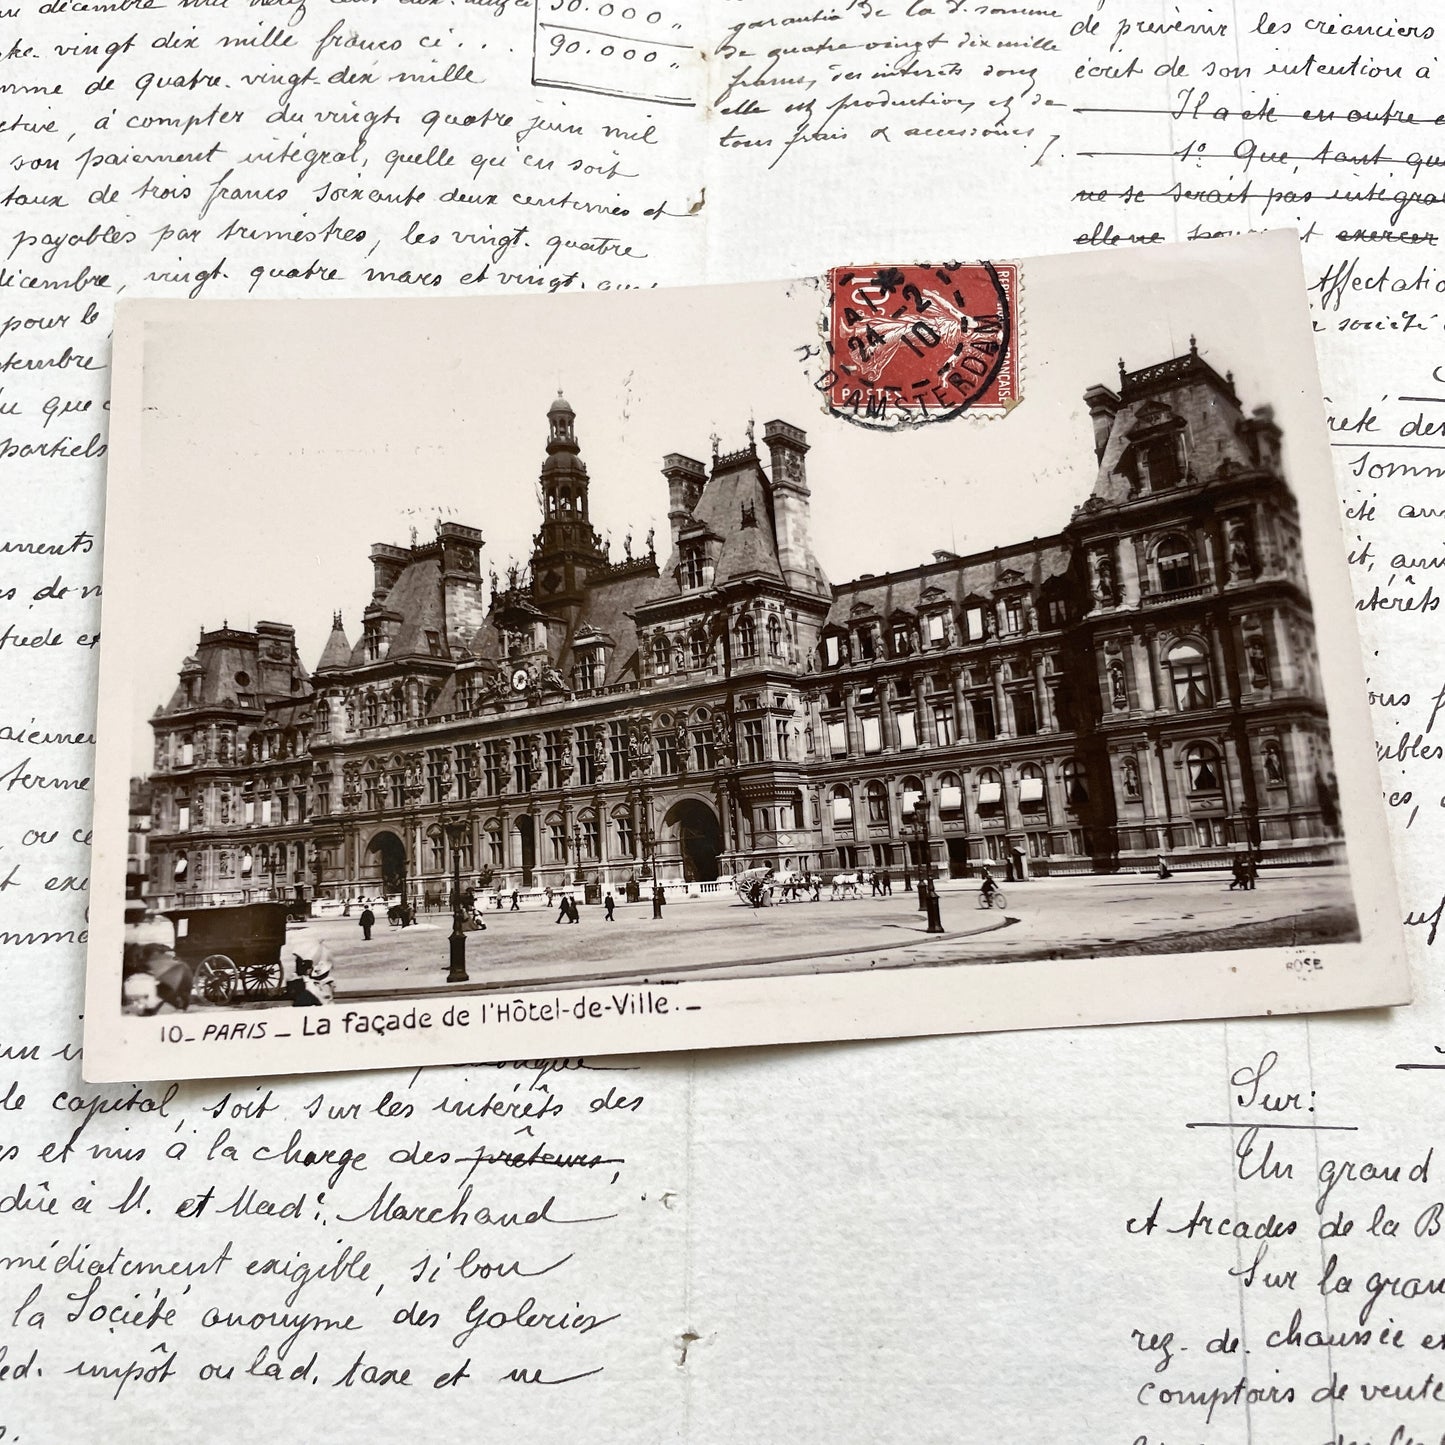 décembre mil neuf cent dix.
vingt dix mille francs ci . . .
50.000 "
90.000 "
de quatre-vingt-dix mille
, à compter du vingt quatre juin mil
son paiement intégral, quelle qu'en soit
taux de trois francs soixante deux centimes et
payables par trimestres, les vingt. quatre
décembre, vingt. quatre mars et vingt.
pour le
que
partiels
garantie de la d. somme
de quatre vingt dix mille
francs, des intérêts dont
elle est productive, et de
tous frais & accessoires
de prévenir les créanciers
écrit de son intention à
Il a été en outre
1º Que, tant que
ne se serait pas
elle ne exercer
Affectatio
société
des
REPUBLIQUE FRANÇAISE
10
POSTES
24 - 2
10
D'AMSTERDAM
10_ PARIS _ La façade de l'Hôtel-de-Ville._
ROSE
le capital, soit sur les intérêts des
et mis à la charge des prêteurs,
dûe à M. et Mad. Marchand
immédiatement exigible, si bon
la Société anonyme des Galeries
led. impôt ou lad. taxe et ne
Sur:
Un grand
et Arcades de la B
Sur la gran
rez. de. chaussée et
comptoirs de vente